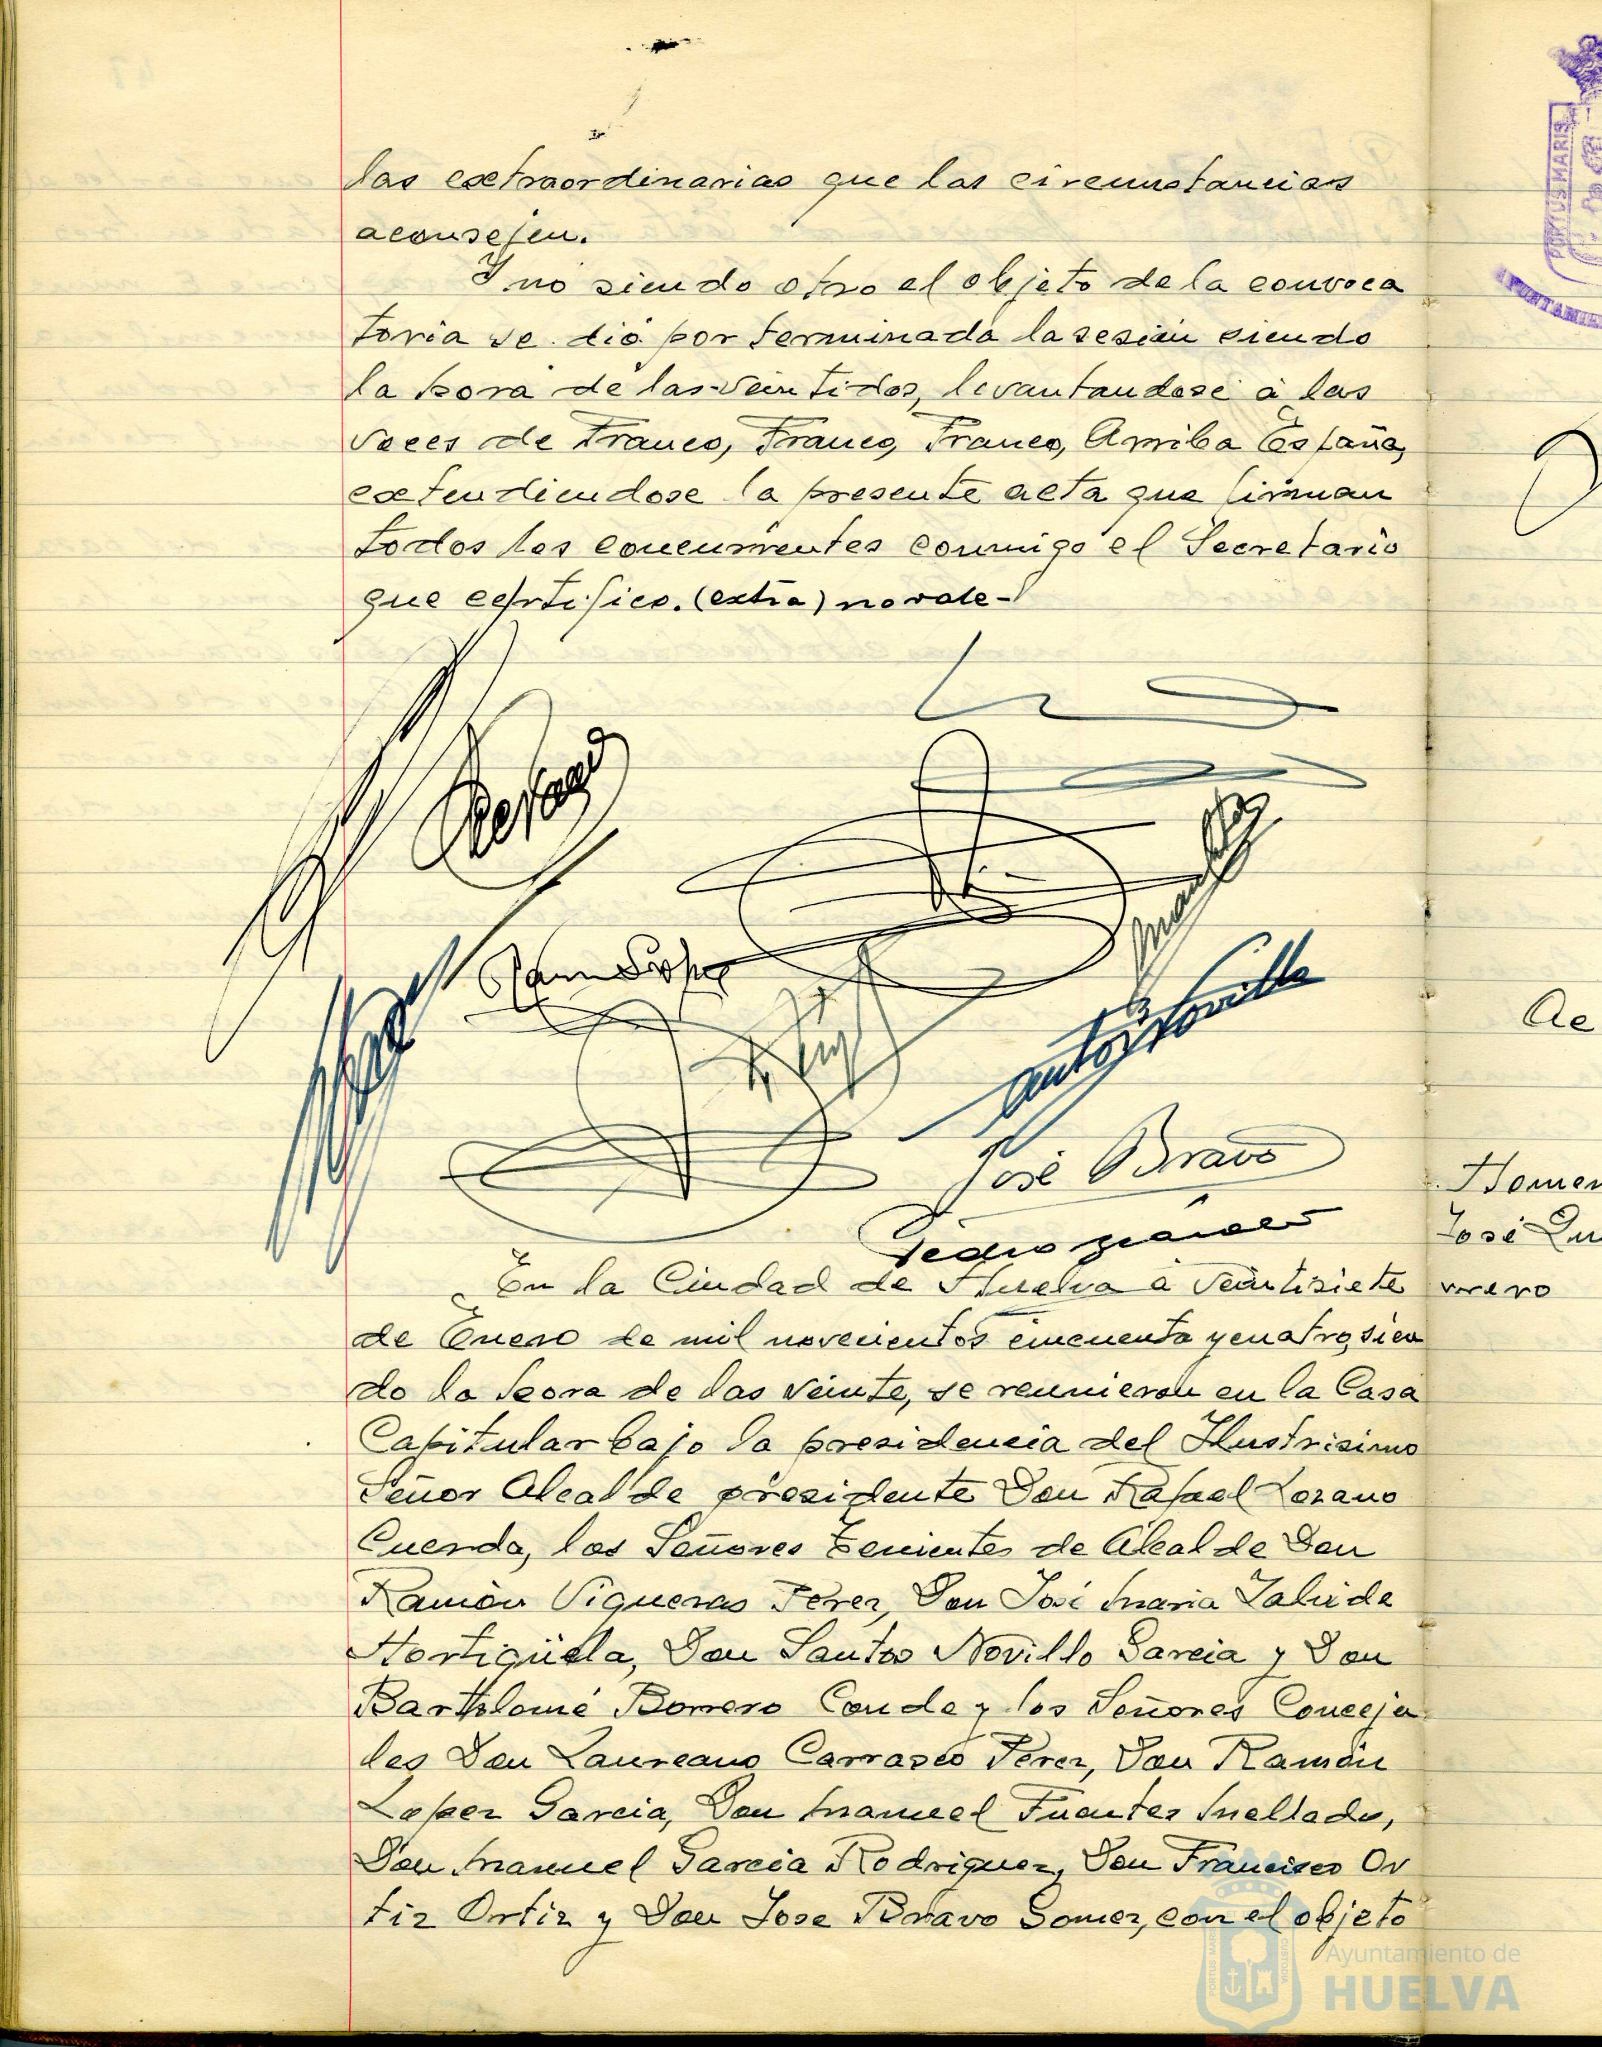 las extraordinarias que las circunstancias
aconsejen.
Y no siendo otro el objeto de la convoca
toria se dió por terminada la sesión siendo
la hora de las veintidos, levantandose á las
voces de Franco, Franco, Franco, Arriba España,
extendiendose la presente acta que firman
todos los concurrentes conmigo el Secretario
que certifico. (extra) no vale-
Ramon Lopez
José Bravo
Pedro
En la Ciudad de Huelva a veintisiete
de Enero de mil novecientos cincuenta y cuatro, sien
do la hora de las veinte, se reunieron en la Casa
Capitular bajo la presidencia del Ilustrisimo
Señor Alcalde presidente Don Rafael Lozano
Cuerda, los Señores Tenientes de Alcalde Don
Ramón Vigueras Perez, Don José Maria Zalvide
Hortigüela, Don Santos Novillo Garcia y Don
Bartolomé Borrero Conde y los Señores Conceja
les Don Laureano Carrasco Perez, Don Ramón
Lopez Garcia, Don Manuel Fuentes Mellado,
Don Manuel Garcia Rodriguez, Don Francisco Or
tiz Ortiz y Don Jose Bravo Gomez, con el objeto
PORTUS MARIS
Ae
Homen
José Qu
rrero
Ayuntamiento de
HUELVA